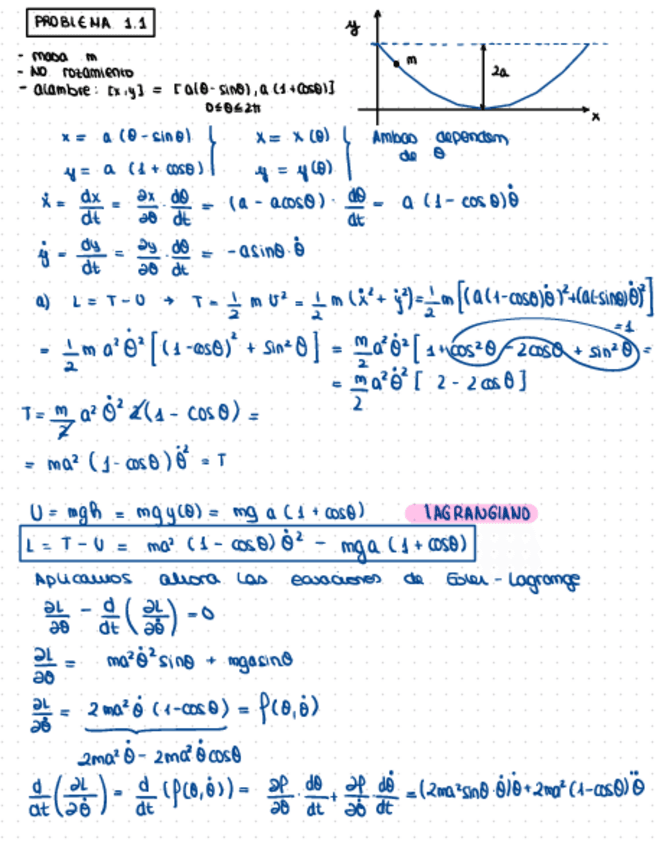 PROBLEMA 1.1
y
m
2a
x
- masa m
- NO rozamiento
- alambre: [x,y] = [a(θ - sinθ), a(1+cosθ)]
0≤θ≤2π
x = a (θ - sinθ) } x = x (θ) } Ambas dependen
y = a (1 + cosθ) } y = y(θ) } de θ
ẋ = dx/dt = ∂x/∂θ · dθ/dt = (a - acosθ) · dθ/dt = a (1 - cosθ)θ̇
ẏ = dy/dt = ∂y/∂θ · dθ/dt = -asinθ·θ̇
a) L = T - U → T = 1/2 m v² = 1/2 m (ẋ² + ẏ²) = 1/2 m [(a(1-cosθ)θ̇)² + (a(-sinθ)θ̇)²]
= 1/2 m a² θ̇² [(1-cosθ)² + sin²θ] = m/2 a² θ̇² [1 + cos²θ - 2cosθ + sin²θ] =
=1
= m/2 a² θ̇² [2 - 2cosθ]
T = m/2 a² θ̇² 2(1 - cosθ) =
= ma² (1-cosθ) θ̇² = T
U = mgh = mgy(θ) = mg a (1 + cosθ) LAGRANGIANO
L = T - U = ma² (1 - cosθ) θ̇² - mga (1 + cosθ)
Aplicamos ahora las ecuaciones de Euler-Lagrange
∂L/∂θ - d/dt (∂L/∂θ̇) = 0
∂L/∂θ = ma²θ̇² sinθ + mgasinθ
∂L/∂θ̇ = 2ma² θ̇ (1-cosθ) = f(θ,θ̇)
2ma² θ̇ - 2ma² θ̇cosθ
d/dt (∂L/∂θ̇) = d/dt (f(θ,θ̇)) = ∂f/∂θ · dθ/dt + ∂f/∂θ̇ · dθ̇/dt = (2ma²sinθ·θ̇)θ̇ + 2ma² (1-cosθ)θ̈